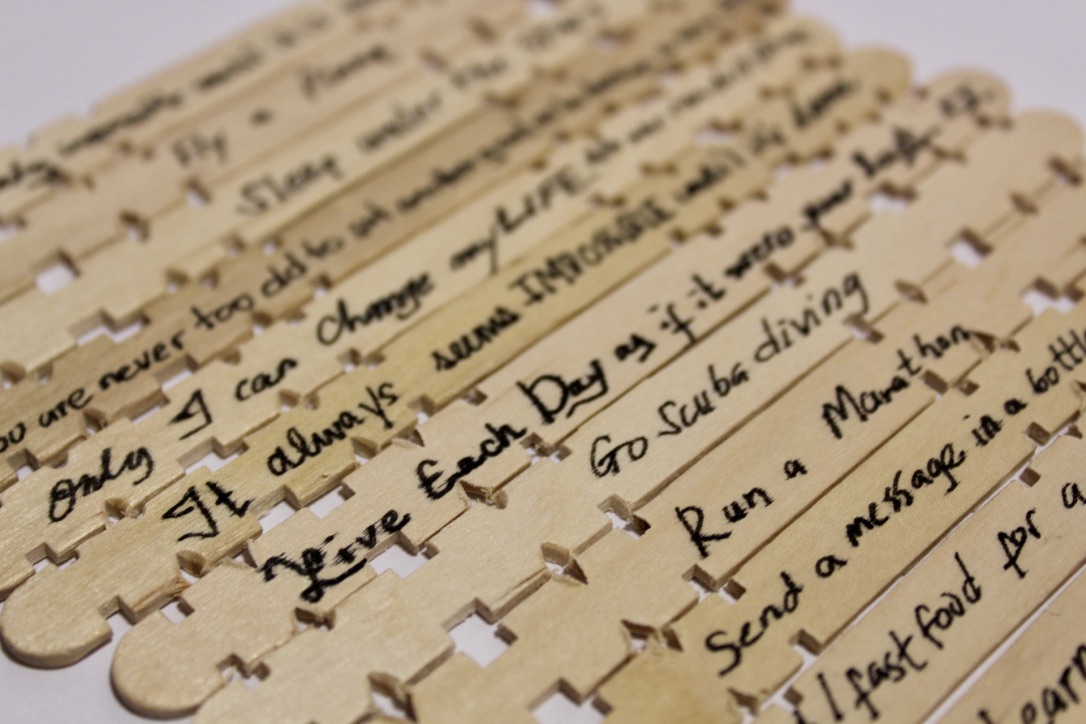 Fly a Plane
Sleep under the
You are never too old to set another goal or to
Only I can change my LIFE.
It always seems IMPOSSIBLE until it's done
Live Each Day as if it were your last
Go Scuba diving
Run a Marathon
Send a message in a bottle
fast food for a
Learn